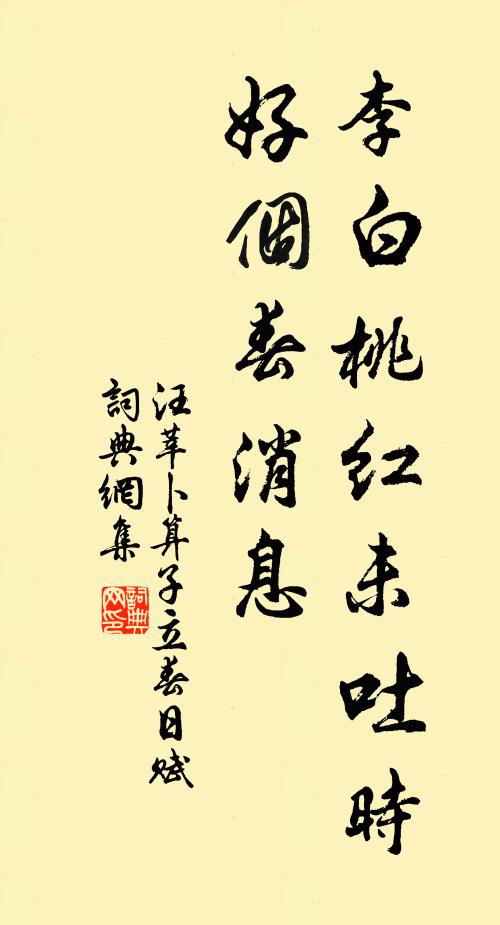 李白桃紅未吐時
好個春消息
汪莘卜算子立春日賦
詞典網集
詞典网印